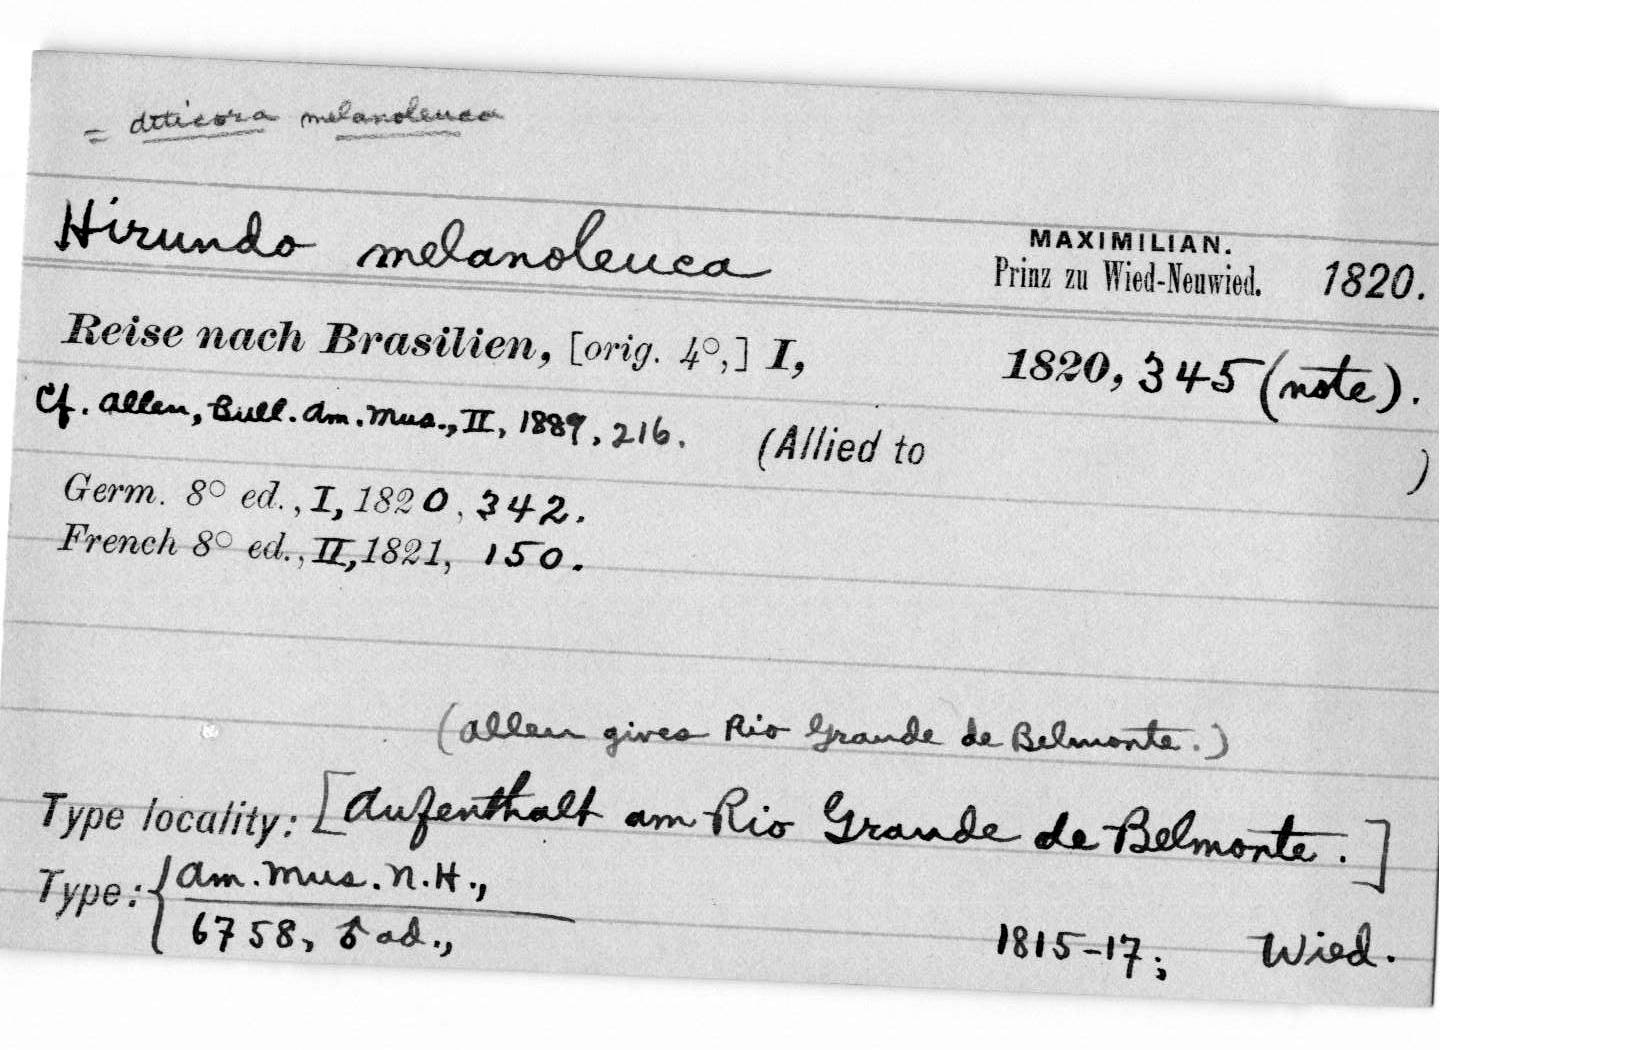 = Atticora melanoleuca
Hirundo melanoleuca
MAXIMILIAN.
Prinz zu Wied-Neuwied. 1820.
Reise nach Brasilien, [orig. 4°,] I, 1820, 345 (note).
Cf. Allen, Bull. Am. Mus., II, 1889, 216. (Allied to )
Germ. 8° ed., I, 1820, 342.
French 8° ed., II, 1821, 150.
(Allen gives Rio Grande de Belmonte.)
Type locality: [Aufenthalt am Rio Grande de Belmonte.]
Type: { Am. Mus. N. H.,
6758, ♂ ad., 1815-17; Wied.